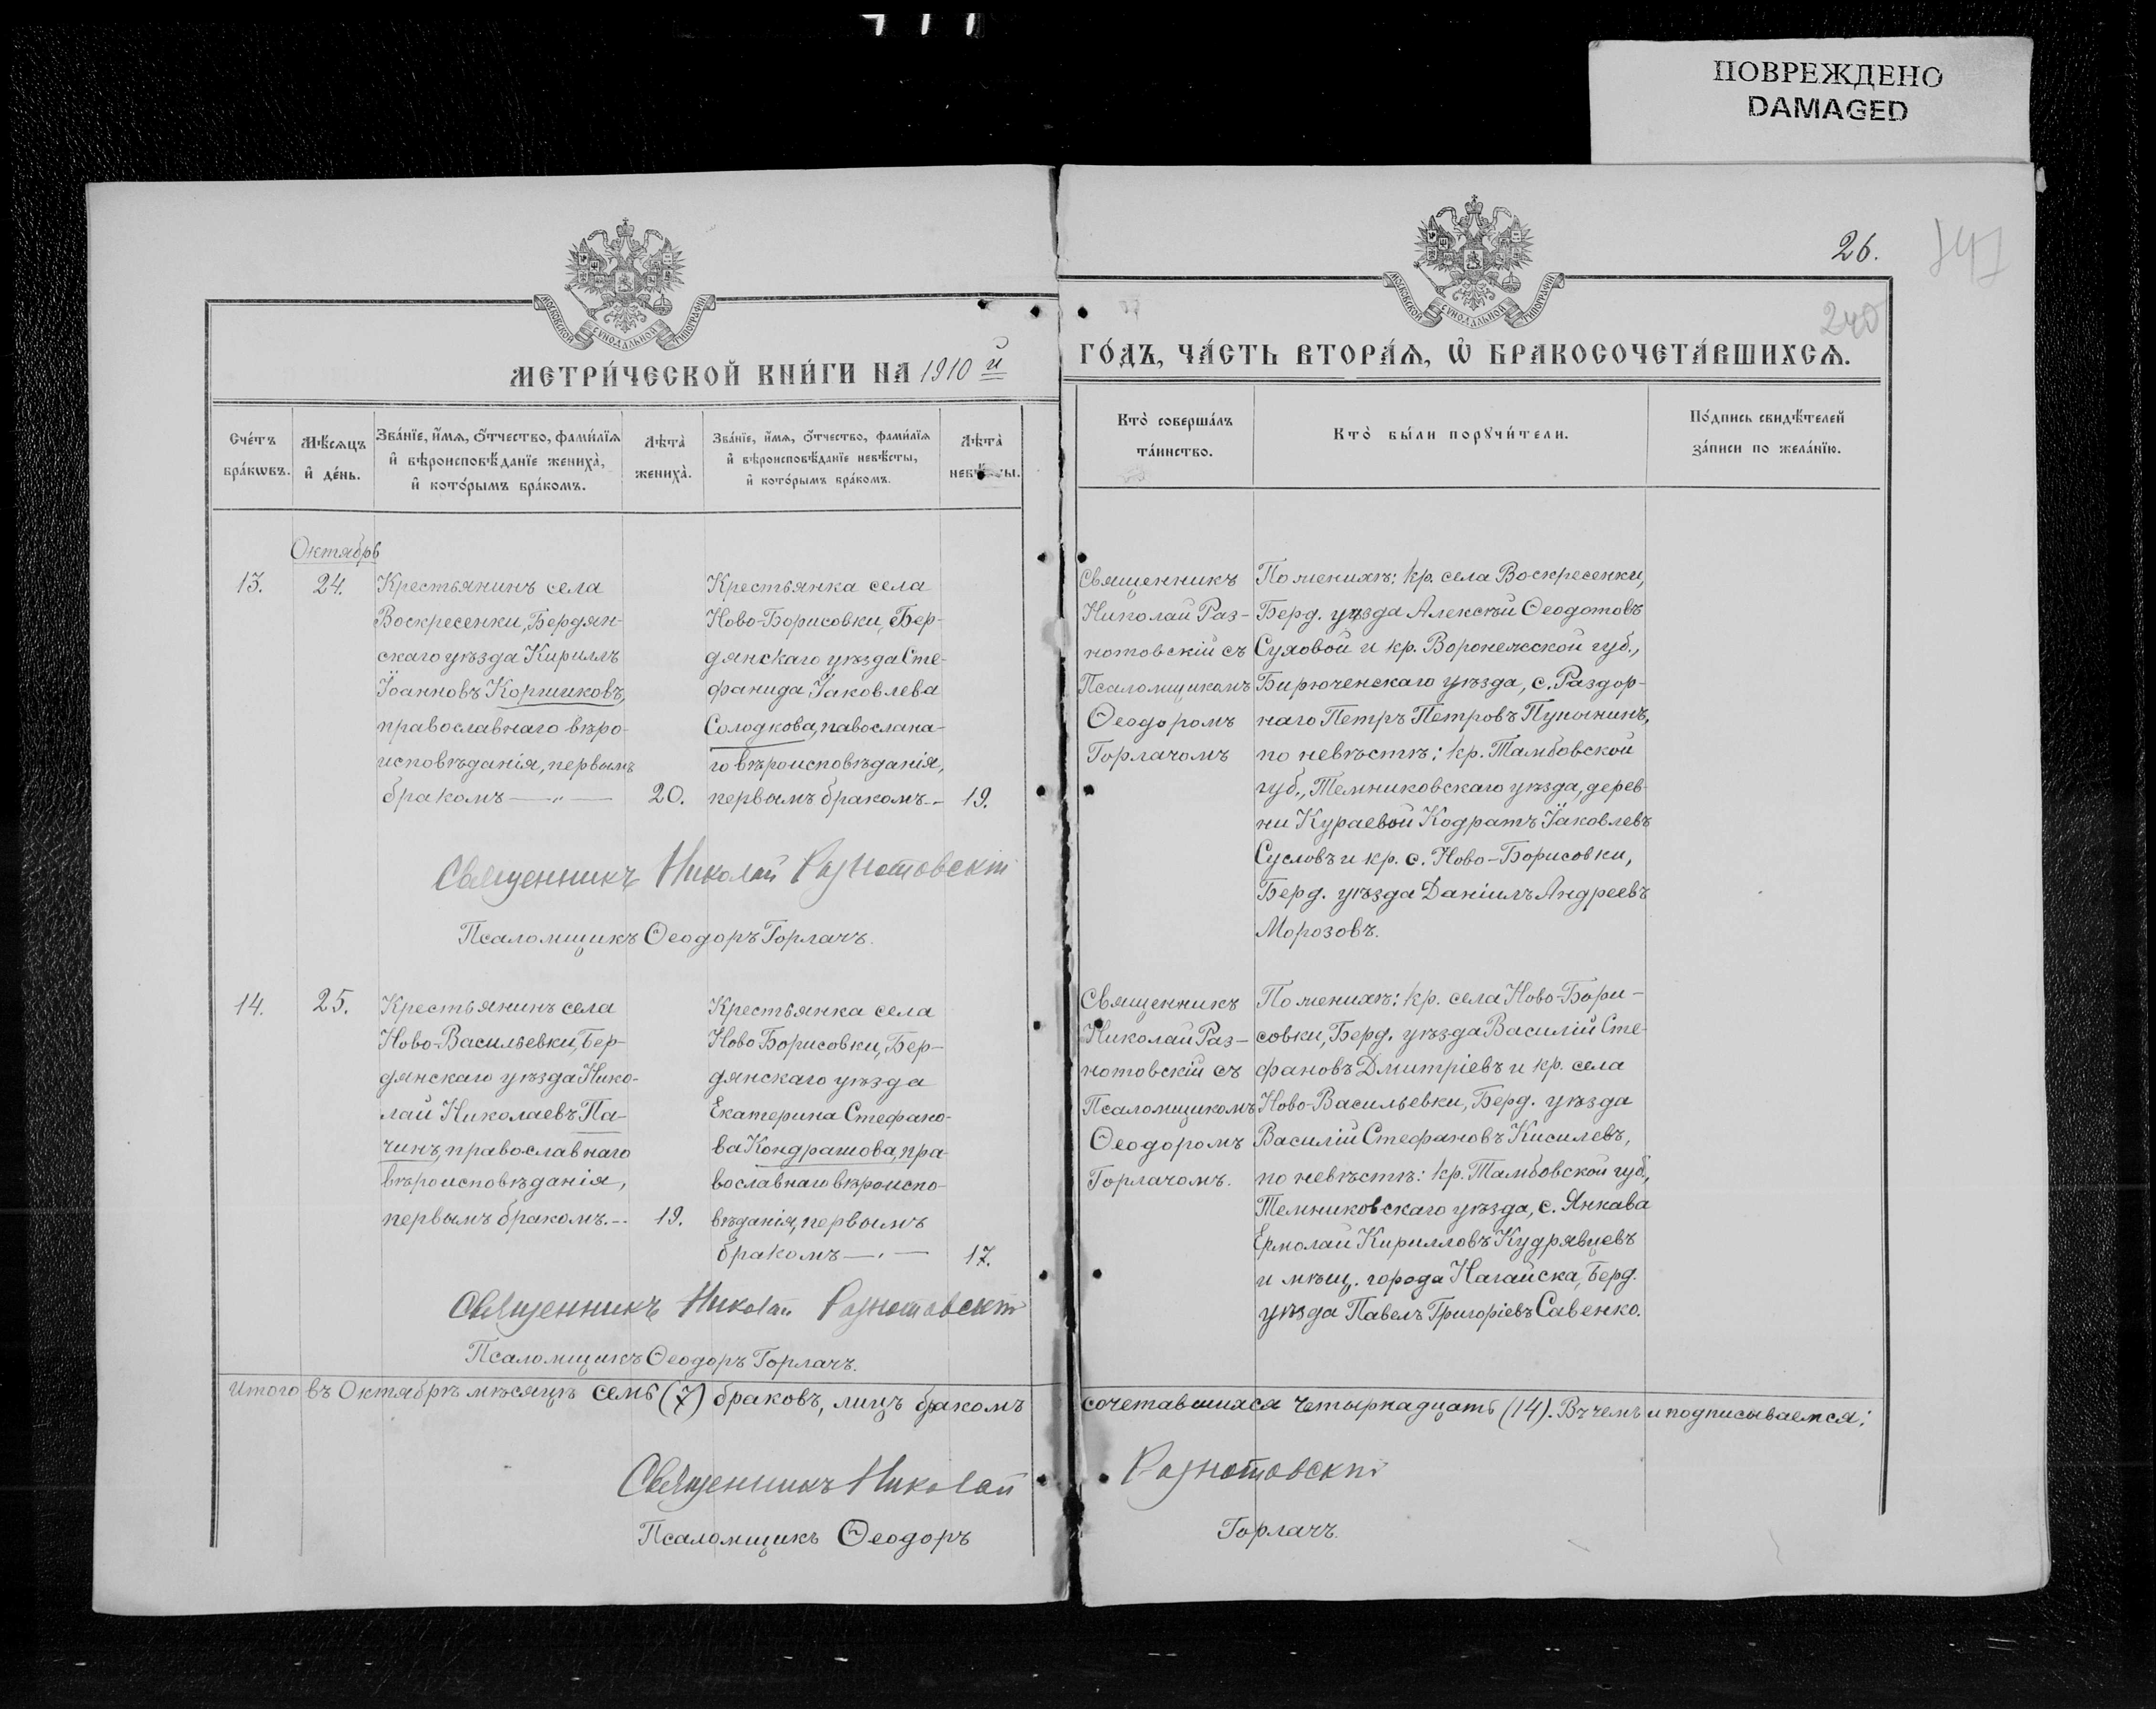 ПОВРЕЖДЕНО
DAMAGED
26.
240
МОСКОВСКОЙ СѴНОДАЛЬНОЙ ТИПОГРАФІИ
МОСКОВСКОЙ СѴНОДАЛЬНОЙ ТИПОГРАФІИ
МЕТРИ́ЧЕСКОЙ КНИ́ГИ НА 1910 й
ГО́ДЪ, ЧА́СТЬ ВТОРА́Ѧ, Ѡ҆ БРАКОСОЧЕТА́ВШИХСѦ.
Сче́тъ
бра́кѡвъ.
Мѣ́сѧцъ
и҆ де́нь.
Зва́нїе, и҆́мѧ, ѻ҆́тчество, фами́лїѧ
и҆ вѣроисповѣ́данїе жениха̀,
и҆ кото́рымъ бра́комъ.
Лѣта̀
жениха̀.
Зва́нїе, и҆́мѧ, ѻ҆́тчество, фами́лїѧ
и҆ вѣроисповѣ́данїе невѣ́сты,
и҆ кото́рымъ бра́комъ.
Лѣта̀
невѣ́сты.
Кто̀ соверша́лъ
та́инство.
Кто̀ бы́ли порꙋчи́тели.
По́дпись свидѣ́телей
за́писи по жела́нїю.
Октябрь
13.
24.
Крестьянинъ села
Воскресенки, Бердян-
скаго уѣзда Кириллъ
Іоанновъ Коршиковъ,
православнаго вѣро-
исповѣданія, первымъ
бракомъ —„—
20.
Крестьянка села
Ново-Борисовки, Бер-
дянскаго уѣзда Сте-
фанида Іаковлева
Солодкова, павослана-
го вѣроисповѣданія,
первымъ бракомъ.-
19.
Священникъ
Николай Раз-
нотовскій съ
Псаломщикомъ
Ѳеодоромъ
Горлачомъ
По женихѣ: кр. села Воскресенки,
Берд. уѣзда Алексѣй Ѳеодотовъ
Суховой и кр. Воронежской губ.,
Бирюченскаго уѣзда, с. Раздор-
наго Петръ Петровъ Пупынинъ,
по невѣстѣ: кр. Тамбовской
губ., Темниковскаго уѣзда, дерев-
ни Кураевой Кодратъ Іаковлевъ
Сусловъ и кр. с. Ново-Борисовки,
Берд. уѣзда Даніилъ Андреевъ
Морозовъ.
Священникъ Николай Разнотовскій
Псаломщикъ Ѳеодоръ Горлачъ.
14.
25.
Крестьянинъ села
Ново-Васильевки, Бер-
дянскаго уѣзда Нико-
лай Николаевъ Па-
чинъ, православнаго
вѣроисповѣданія,
первымъ бракомъ.-
19.
Крестьянка села
Ново Борисовки, Бер-
дянскаго уѣзда
Екатерина Стефано-
ва Кондрашова, пра-
вославнаго вѣроиспо-
вѣданія, первымъ
бракомъ —.—
17.
Священникъ
Николай Раз-
нотовскій съ
Псаломщикомъ
Ѳеодоромъ
Горлачомъ.
По женихѣ: кр. села Ново-Бори-
совки, Берд. уѣзда Василій Сте-
фановъ Дмитріевъ и кр. села
Ново-Васильевки, Берд. уѣзда
Василій Стефановъ Кисилевъ,
по невѣстѣ: кр. Тамбовской губ.,
Темниковскаго уѣзда, с. Янкава
Ермолай Кирилловъ Кудрявцевъ
и мѣщ. города Нагайска, Берд.
уѣзда Павелъ Григоріевъ Савенко.
Священникъ Николай Разнотовскій
Псаломщикъ Ѳеодоръ Горлачъ.
Итого въ Октябрѣ мѣсяцѣ семь (7) браковъ, лицъ бракомъ сочетавшихся четырнадцать (14). Въ чемъ и подписываемся:
Священникъ Николай Разнотовскій
Псаломщикъ Ѳеодоръ Горлачъ.